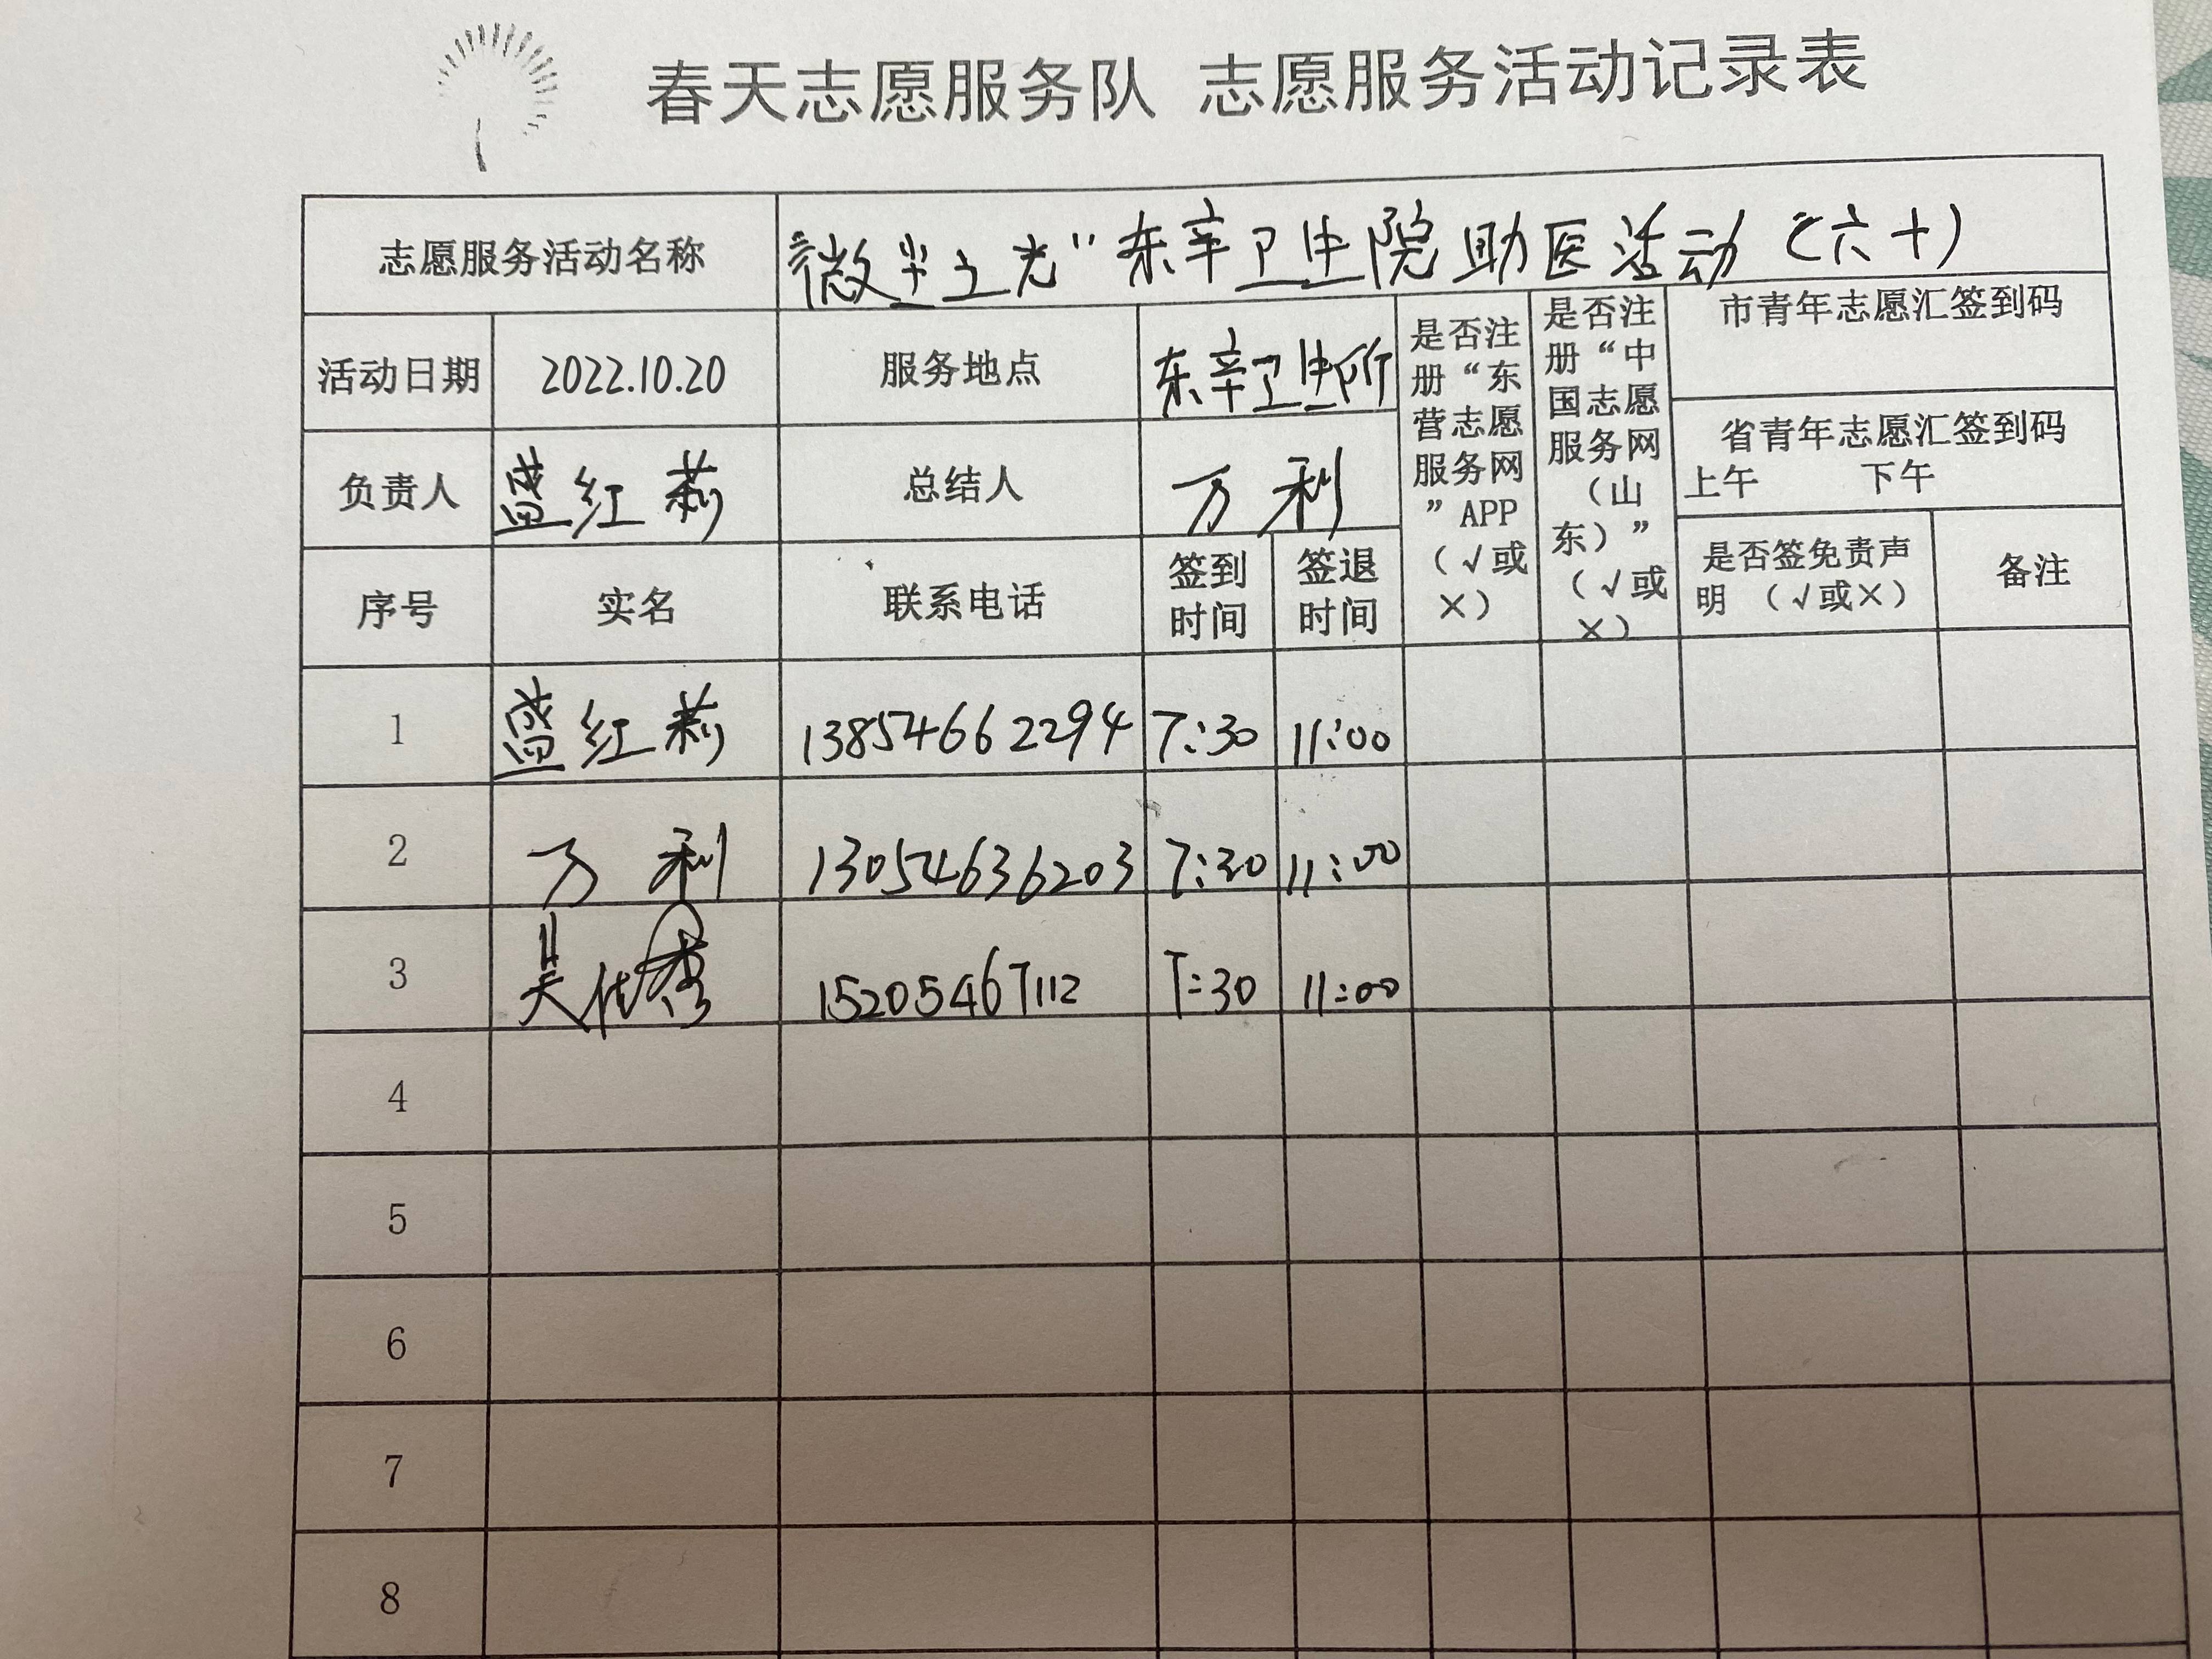 春天志愿服务队 志愿服务活动记录表
志愿服务活动名称 “微尘之光”东辛卫生院助医活动(六十)
活动日期 2022.10.20 服务地点 东辛卫生所
是否注册“东营志愿服务网”APP（√或×）
是否注册“中国志愿服务网（山东）”（√或×）
市青年志愿汇签到码
省青年志愿汇签到码
上午 下午
负责人 盛红莉 总结人 万利
序号 实名 联系电话 签到时间 签退时间 是否签免责声明 （√或×） 备注
1 盛红莉 13854662294 7:30 11:00
2 万利 13054636203 7:30 11:00
3 吴代秀 15205467112 7:30 11:00
4
5
6
7
8